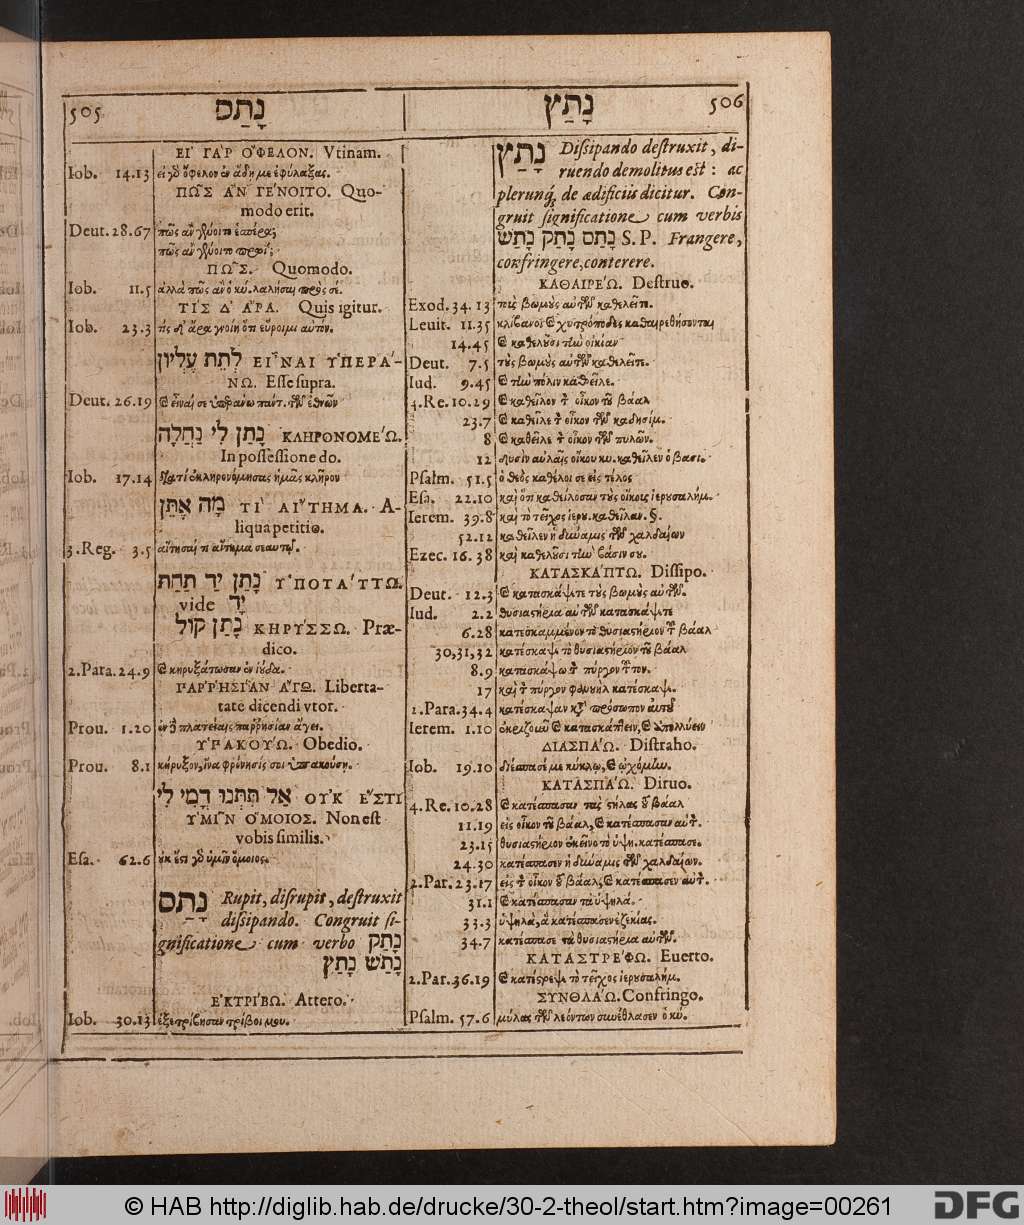 505 נָתַס
ΕΙ' ΓΑ'Ρ Ο'ΦΕΛΟΝ. Vtinam.
Iob. 14.13 εἰ γὸ ὄφελον ἐν ἅδῃ με ἐφύλαξας.
ΠΩ͂Σ Α'Ν ΓΕ'ΝΟΙΤΟ. Quo-
modo erit.
Deut. 28.67 πῶς ἂν γένοιτο ἑσπέρα;
πῶς ἂν γένοιτο πρωί;
ΠΩ͂Σ. Quomodo.
Iob. 11.5 ἀλλὰ πῶς ἂν ὁ κύ. λαλήσαι πρὸς σέ.
ΤΙΣ Δ' Α'ΡΑ. Quis igitur.
Iob. 23.3 τίς δ' ἄρα γνοίη ὅτι εὕροιμι αὐτόν.
לְתֵת עֶלְיוֹן ΕΙ͂ΝΑΙ Υ'ΠΕΡΑ'-
ΝΩ. Esse supra.
Deut. 26.19 ϗ εἶναί σε ὑπεράνω πάντ. τῶν ἐθνῶν
נָתַן לִי נַחֲלָה ΚΛΗΡΟΝΟΜΕ'Ω.
In possessione do.
Iob. 17.14
מָה אֶתֵּן ΤΙ' ΑΙ'ΤΗΜΑ. A-
liqua petitio.
3.Reg. 3.5 αἴτησαί τι αἴτημα σεαυτῷ.
נָתַן יַד תַּחַת Υ'ΠΟΤΑ'ΤΤΩ.
vide יָד
נָתַן קוֹל ΚΗΡΥ'ΣΣΩ. Præ-
dico.
2.Para. 24.9 ϗ κηρυξάτωσαν ἐν ἰούδα.
ΠΑΡΡΗΣΙ'ΑΝ Α'ΓΩ. Liberta-
tate dicendi vtor.
Prou. 1.20 ἐν δ πλατείαις παῤῥησίαν ἄγει.
Υ'ΠΑΚΟΥ'Ω. Obedio.
Prou. 8.1 κήρυξον, ἵνα φρόνησίς σοι ὑπακούσῃ.
אַל תִּתְּנוּ דֳמִי לִי ΟΥ'Κ Ε'ΣΤΙ
Υ'ΜΙ͂Ν Ο'ΜΟΙΟΣ. Non est
vobis similis.
Esa. 62.6 οὐκ ἔστι γὸ ὑμῖν ὅμοιος.
נָתַס Rupit, disrupit, destruxit
dissipando. Congruit si-
gnificatione cum verbo נָתַק
נָתַשׁ נָתַץ
Ε'ΚΤΡΙ'ΒΩ. Attero.
Iob. 30.13 ἐξετρίβησαν τρίβοι μου.
נָתַץ 506
נָתַץ Dissipando destruxit, di-
ruendo demolitus est: ac
plerunq; de ædificiis dicitur. Con-
gruit significatione cum verbis
נָתַס נָתַק נָתַשׁ S.P. Frangere,
confringere, conterere.
ΚΑΘΑΙΡΕ'Ω. Destruo.
Exod. 34. 13 τοὺς βωμοὺς αὐτῶν καθελεῖτε.
Leuit. 11.35 κλίβανοι ϗ χυτρόποδες καθαιρεθήσονται
14.45 ϗ καθελοῦσι τὴν οἰκίαν
Deut. 7.5 τοὺς βωμοὺς αὐτῶν καθελεῖτε.
Iud. 9.45 ϗ τὴν πόλιν καθεῖλε.
4.Re. 10.29 ϗ καθεῖλον τ οἶκον τοῦ βάαλ
23.7 ϗ καθεῖλε τ οἶκον τῶν καδησίμ.
8 ϗ καθεῖλε τ οἶκον τῶν πυλῶν.
12 δυσὶν αὐλαῖς οἴκου κυ. καθεῖλεν ὁ βασι.
Psalm. 51.5 ὁ θεὸς καθέλοι σε εἰς τέλος
Esa. 22.10 καὶ ὅτι καθείλοσαν τοὺς οἴκους ἱερουσαλήμ.
Ierem. 39.8 καὶ τὸ τεῖχος ἱερου. καθεῖλαν. §.
52.12 καθεῖλεν ἡ δύναμις τῶν χαλδαίων
Ezec. 16. 38 καὶ καθελοῦσι τὴν βάσιν σου.
ΚΑΤΑΣΚΑ'ΠΤΩ. Dissipo.
Deut. 12.3 ϗ κατασκάψετε τοὺς βωμοὺς αὐτῶν.
Iud. 2.2 θυσιαστήρια αὐτῶν κατασκάψετε
6.28 κατεσκαμμένον τὸ θυσιαστήριον τ βάαλ
30,31,32 κατέσκαψε τὸ θυσιαστήριον τοῦ βάαλ
8.9 κατασκάψω τ πύργον τοῦτον.
17 καὶ τ πύργον φανουὴλ κατέσκαψε.
1.Para. 34.4 κατέσκαψαν κατὰ πρόσωπον αὐτοῦ
Ierem. 1.10 ἐκριζοῦν ϗ κατασκάπτειν, ϗ ἀπολλύειν
ΔΙΑΣΠΑ'Ω. Distraho.
Iob. 19.10 διέσπασέ με κύκλῳ, ϗ ᾠχόμην.
ΚΑΤΑΣΠΑ'Ω. Diruo.
4.Re. 10.28 ϗ κατέσπασαν τὰς στήλας τοῦ βάαλ
11.19 εἰς οἶκον τοῦ βάαλ, ϗ κατέσπασαν αὐτ.
23.15 θυσιαστήριον ἐκεῖνο τὸ ὑψη. κατέσπασε.
24.30 κατέσπασεν ἡ δύναμις τῶν χαλδαίων.
2.Par. 23.17 εἰς τ οἶκον τοῦ βάαλ, ϗ κατέσπασεν αὐτ.
31.1 ϗ κατέσπασαν τὰ ὑψηλά.
33.3 ὑψηλὰ, ἃ κατέσπασεν ἐζεκίας.
34.7 κατέσπασε τὰ θυσιαστήρια αὐτῶν.
ΚΑΤΑΣΤΡΕ'ΦΩ. Euerto.
2.Par. 36.19 ϗ κατέστρεψε τὸ τεῖχος ἱερουσαλήμ.
ΣΥΝΘΛΑ'Ω. Confringo.
Psalm. 57.6 μύλας τῶν λεόντων συνέθλασεν ὁ κύ.
© HAB http://diglib.hab.de/drucke/30-2-theol/start.htm?image=00261
DFG